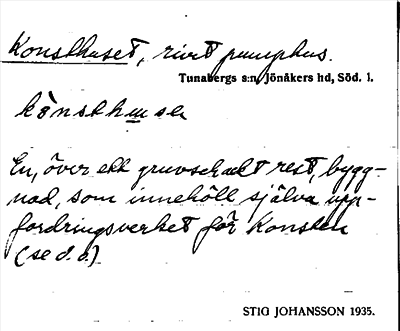 Konsthuset, rivet pumphus.
Tunabergs s:n, Jönåkers hd, Söd. l.
kò̀nsthu̲sə
En, över ett gruvschakt rest, bygg-
nad, som innehöll själva upp-
fordringsverket för Konsten
(se d. o.).
STIG JOHANSSON 1935.